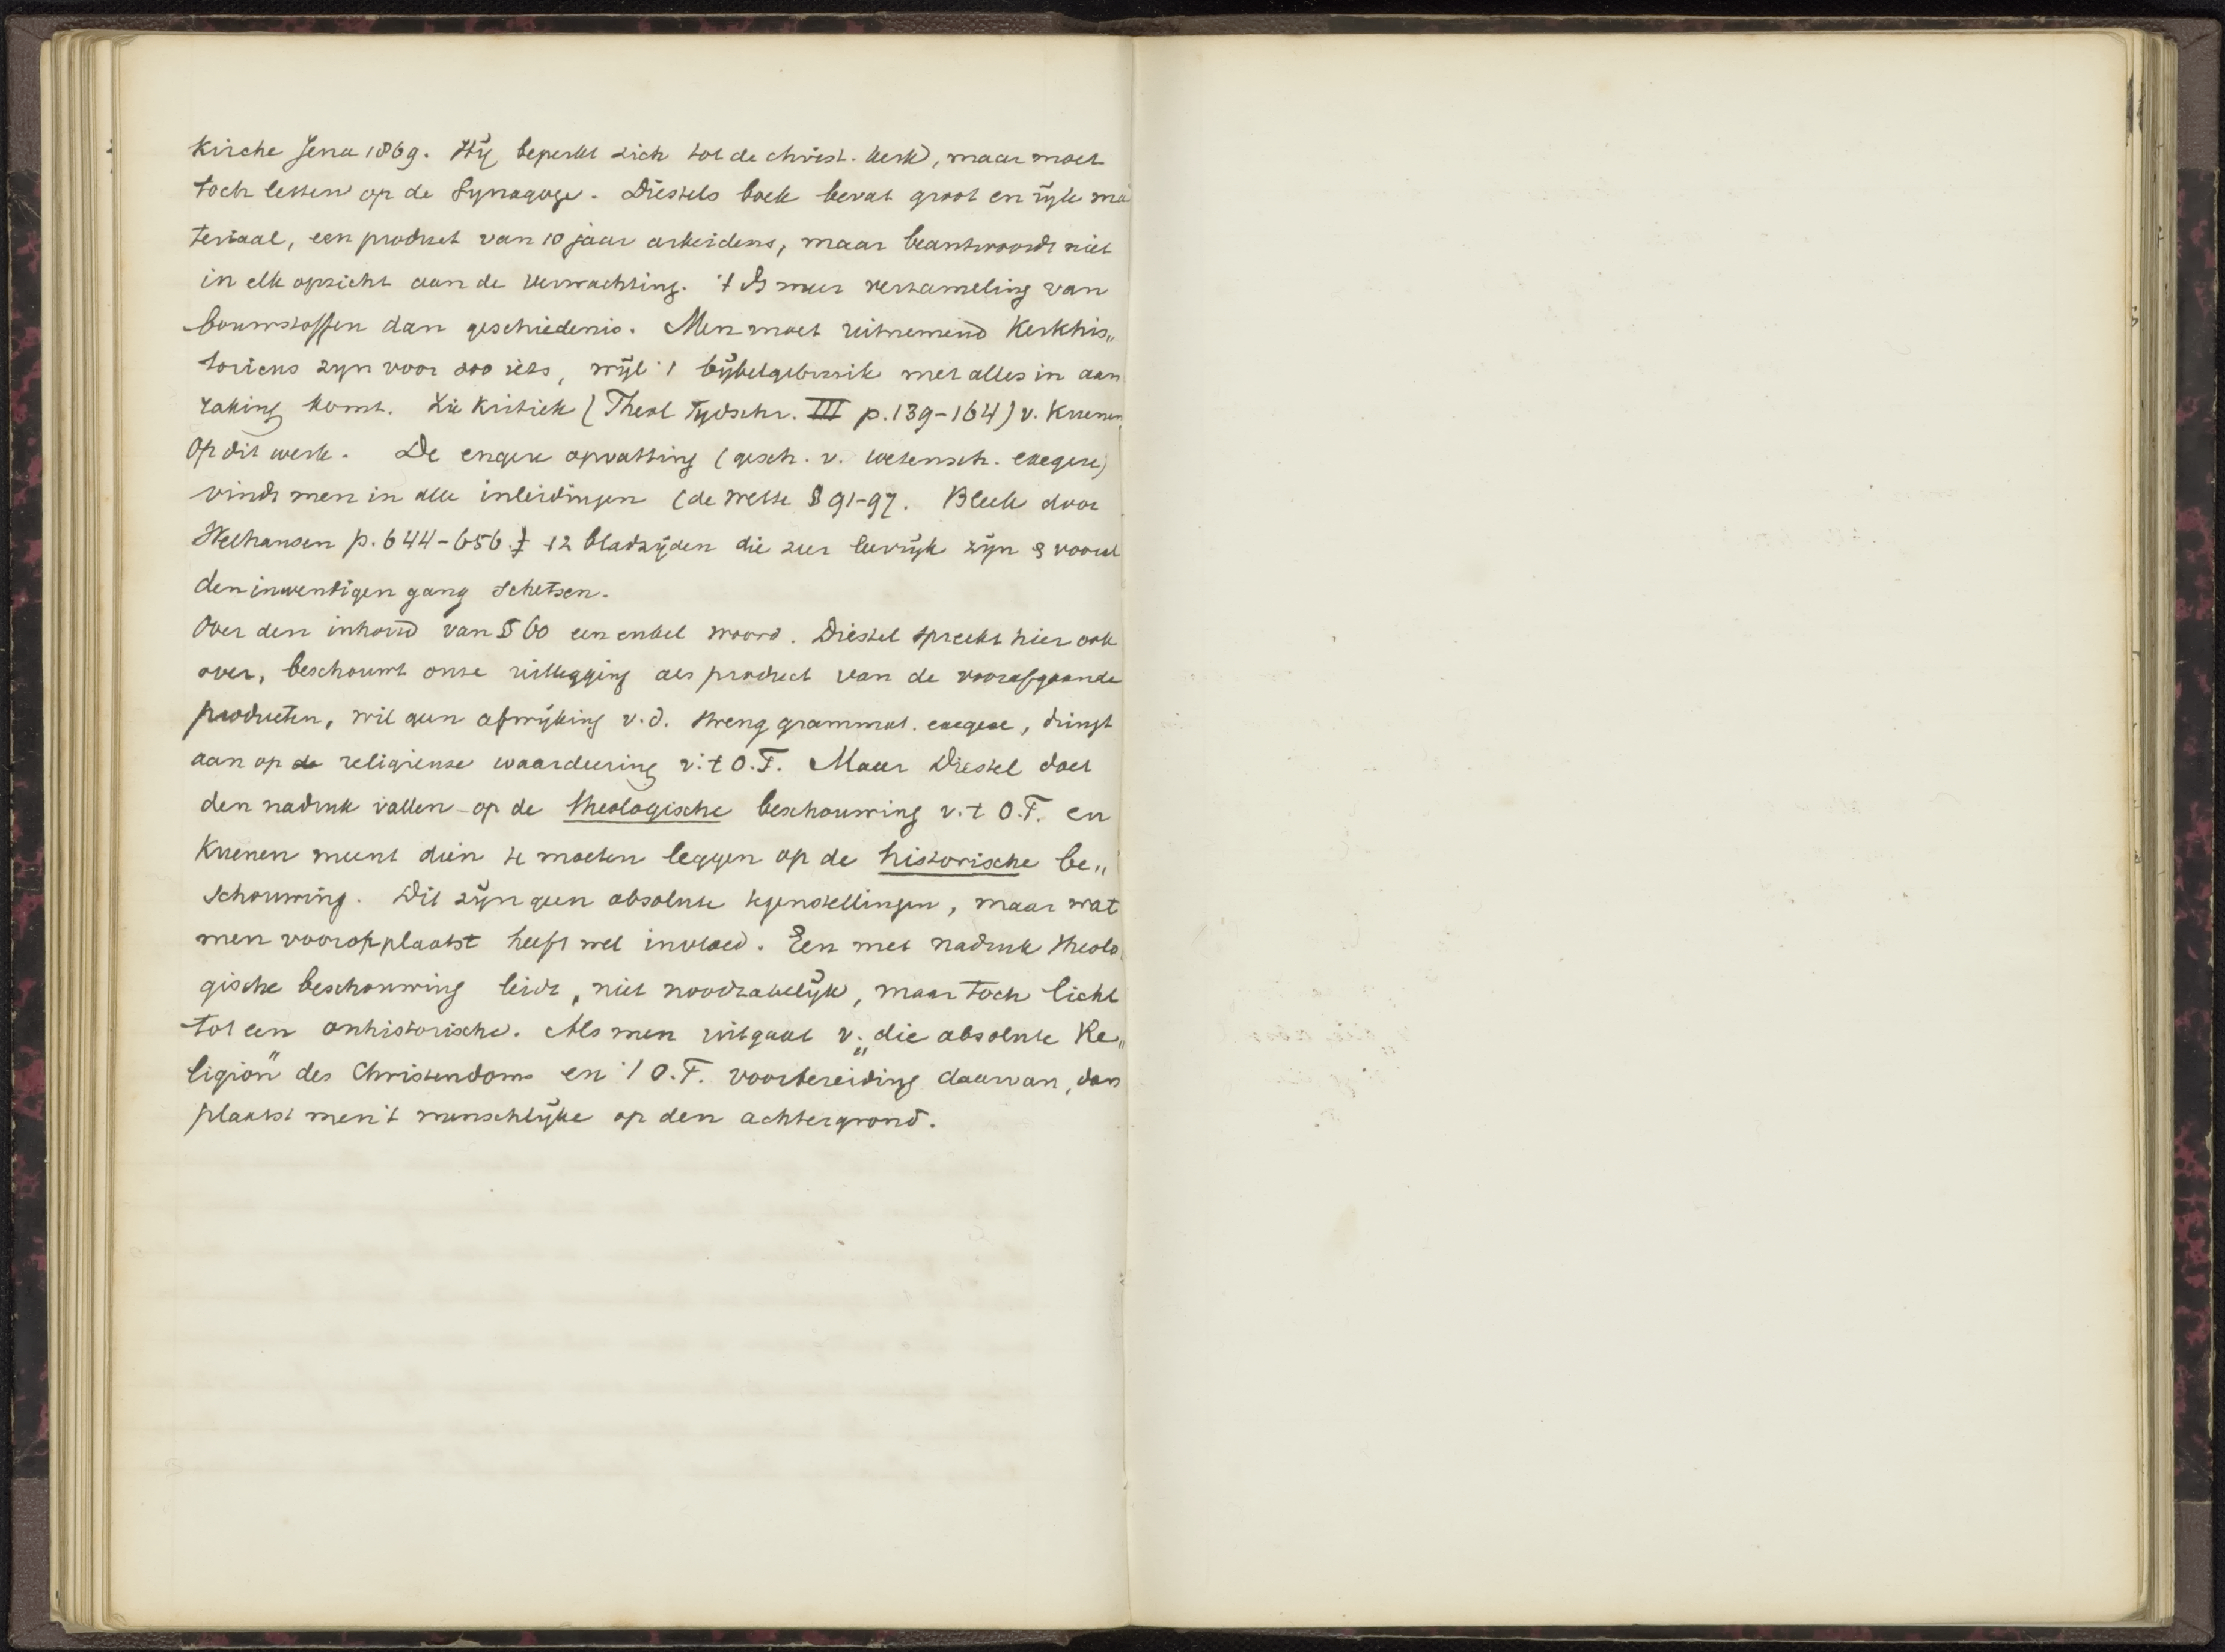 Kirche Jena 1869. Hij beperkt zich tot de christ. kerk, maar moet
toch letten op de Synagoge. Diestels boek bevat groot en rijk ma
teriaal, een product van 10 jaar arbeidens, maar beantwoordt niet
in elk opzicht aan de verwachting. 't Is meer verzameling van
bouwstoffen dan geschiedenis. Men moet uitnemend Kerkhis„
toricus zijn voor zoo iets, wijl 't bijbelgebruik met alles in aan
raking komt. Zie Kritiek (Theol Tijdschr. III p. 139-164) v. Kuenen
op dit werk. De engere opvatting (gesch. v. wetensch. exegese)
vindt men in alle inleidingen (de Wette § 91-97. Bleek door
Welhausen p. 644-656.) 12 bladzijden die zeer leerrijk zijn & vooral
den inwendigen gang schetsen.
Over den inhoud van § 60 een enkel woord. Diestel spreekt hier ook
over, beschouwt onze uitlegging als product van de voorafgaande
producten, wil geen afwijking v.d. streng grammat. exegese, dringt
aan op de religieuse waardeering v. 't O.T. Maar Diestel doet
den nadruk vallen op de theologische beschouwing v. 't O.T. en
Kuenen meent dien te moeten leggen op de historische be„
schouwing. Dit zijn geen absolute tegenstellingen, maar wat
men vooropplaatst heeft wel invloed. Een met nadruk theolo
gische beschouwing leidt, niet noodzakelijk, maar toch licht
tot een onhistorische. Als men uitgaat v. „die absolute Re„
ligion" des Christendoms en 't O.T. voorbereiding daarvan, dan
plaatst men 't menschlijke op den achtergrond.